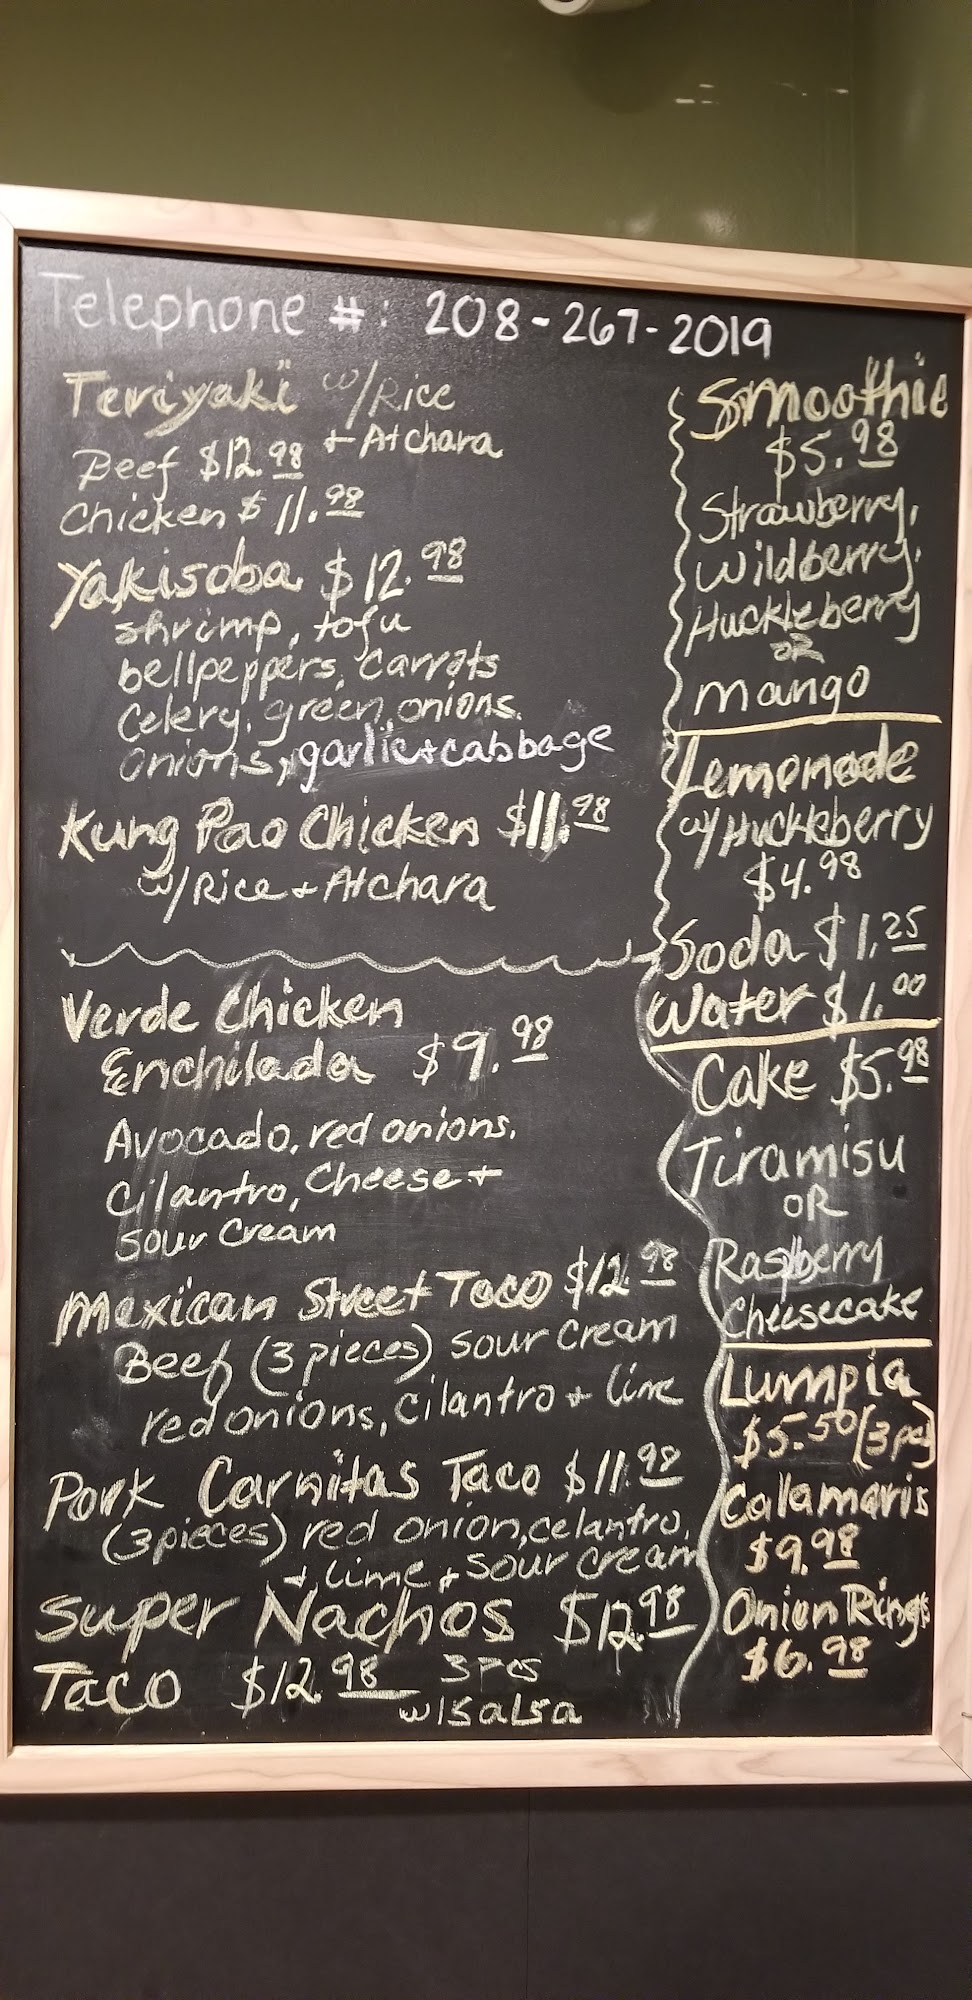 Telephone #: 208-267-2019
Teriyaki w/Rice
+ Atchara
Beef $12.98
Chicken $11.98
Yakisoba $12.98
shrimp, tofu
bellpeppers, carrots
Celery, green onions.
Onions, garlic+cabbage
Kung Pao Chicken $11.98
w/Rice + Atchara
Verde Chicken
Enchilada $9.98
Avocado, red onions,
Cilantro, Cheese +
Sour Cream
Mexican Street Taco $12.98
Beef (3 pieces) sour cream
red onions, cilantro + lime
Pork Carnitas Taco $11.98
(3 pieces) red onion, celantro,
+ lime + sour cream
Super Nachos $12.98
Taco $12.98 3 pcs
w/salsa
Smoothie
$5.98
Strawberry,
Wildberry,
Huckleberry
OR
Mango
Lemonade
w/Huckleberry
$4.98
Soda $1.25
Water $1.00
Cake $5.98
Tiramisu
OR
Raspberry
Cheesecake
Lumpia
$5.50 (3 pcs)
Calamaris
$9.98
Onion Rings
$6.98